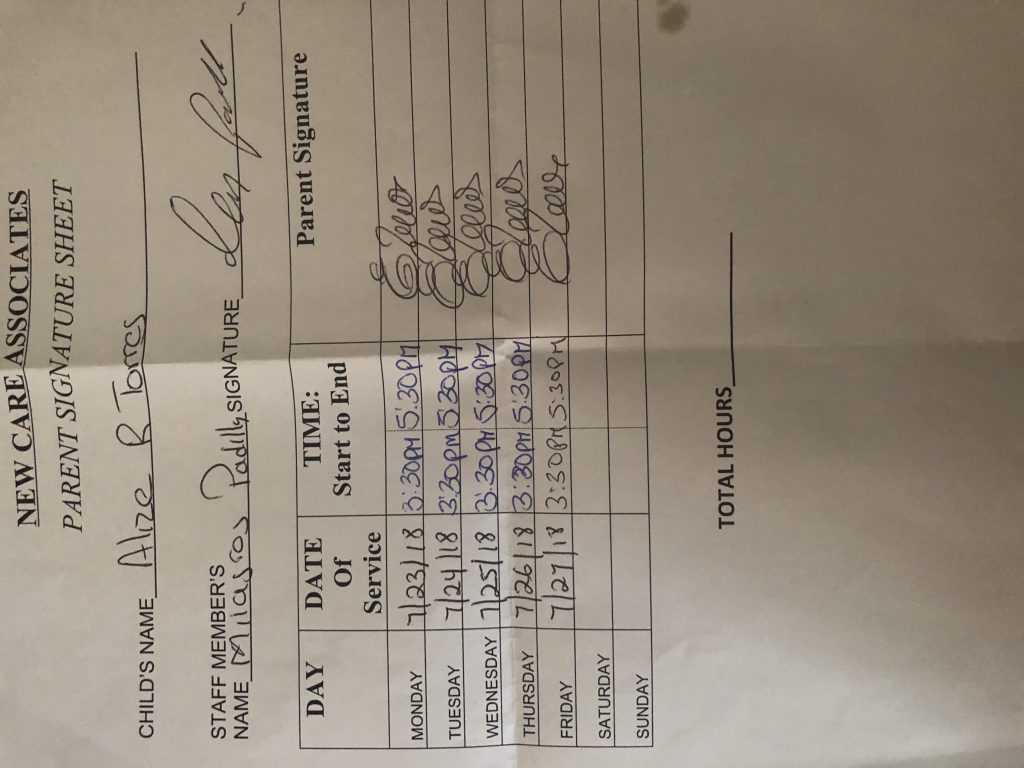 NEW CARE ASSOCIATES
PARENT SIGNATURE SHEET
CHILD'S NAME Alize R Torres
STAFF MEMBER'S
NAME Milagros Padilla SIGNATURE
DAY DATE Of Service TIME: Start to End Parent Signature
MONDAY 7/23/18 3:30PM 5:30PM
TUESDAY 7/24/18 3:30PM 5:30PM
WEDNESDAY 7/25/18 3:30PM 5:30PM
THURSDAY 7/26/18 3:30PM 5:30PM
FRIDAY 7/27/18 3:30PM 5:30PM
SATURDAY
SUNDAY
TOTAL HOURS